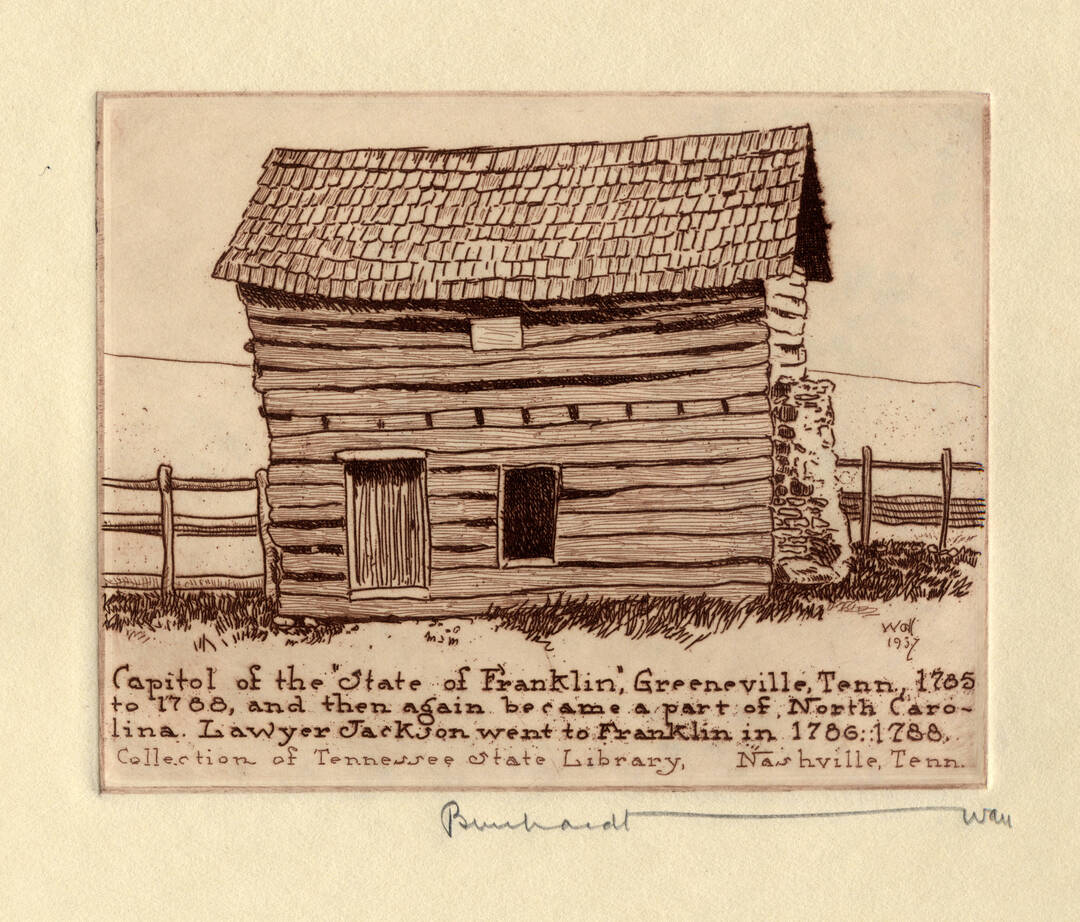 Wall
1937
Capitol of the "State of Franklin", Greeneville, Tenn., 1785
to 1788, and then again became a part of North Caro-
lina. Lawyer Jackson went to Franklin in 1786::1788.
Collection of Tennessee State Library, Nashville, Tenn.
Burkhardt Wall